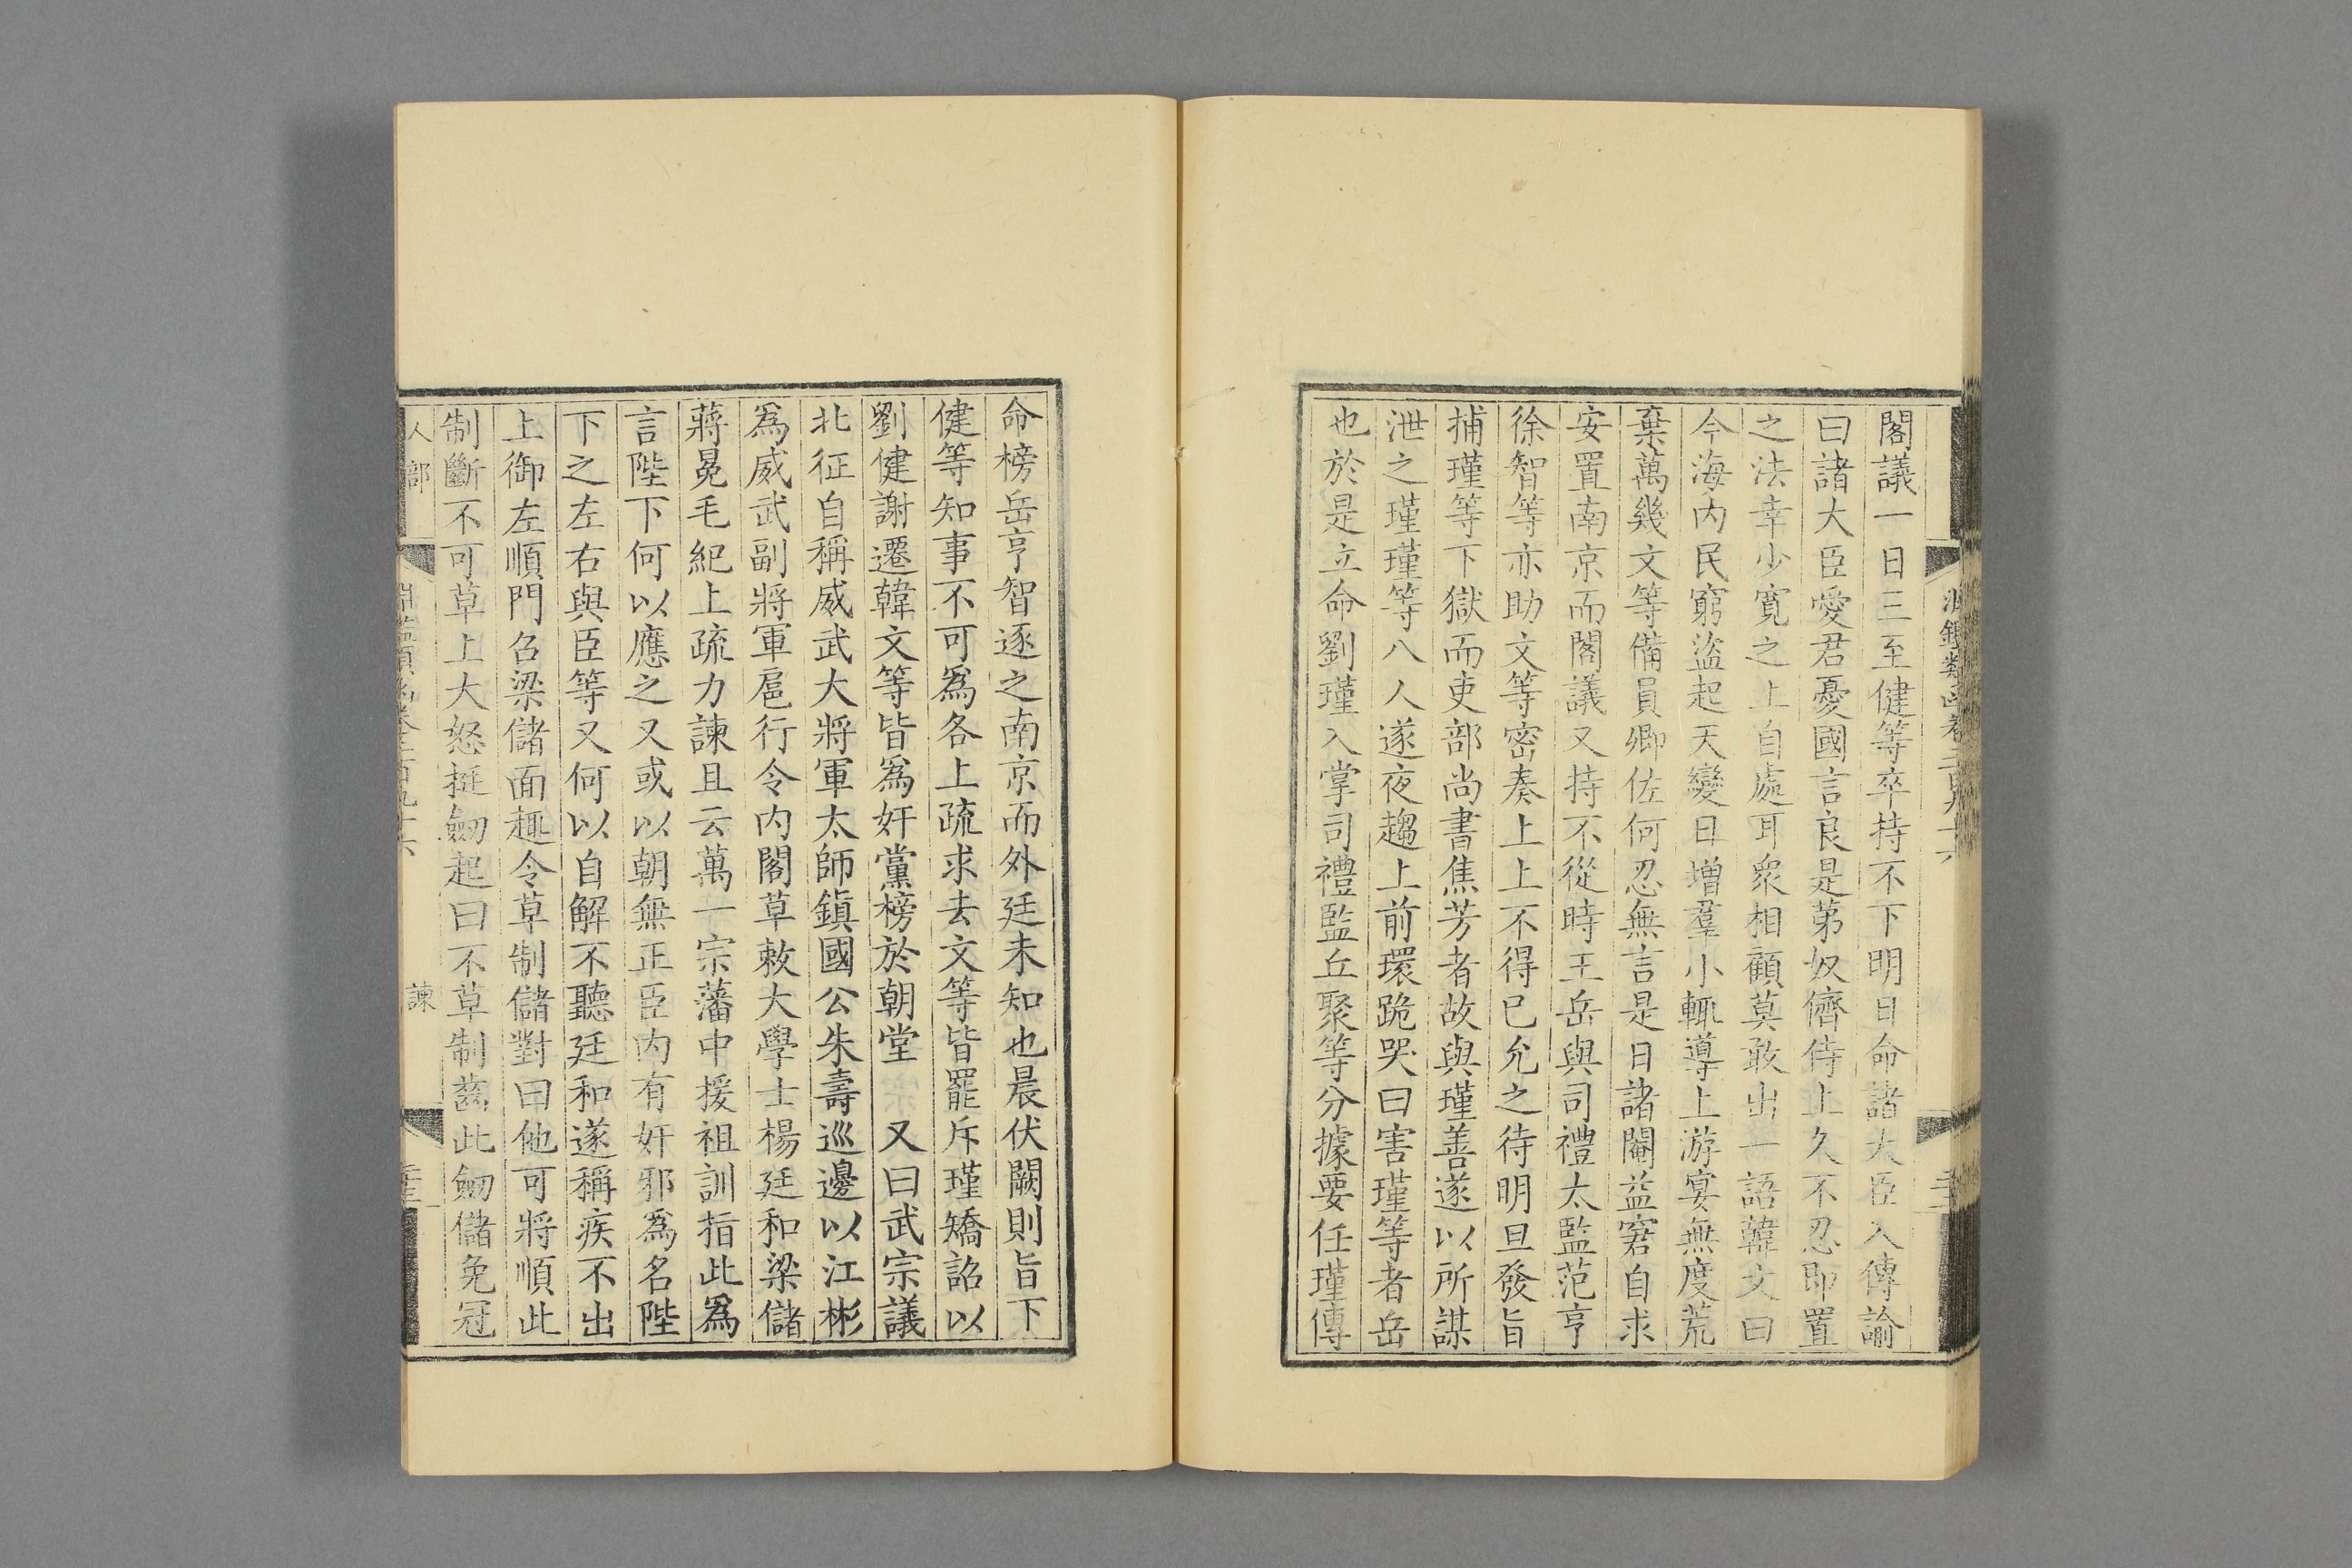 閣議一日三至健等卒持不下明日命諸大臣入傳諭
曰諸大臣愛君憂國言良是第奴儕侍上久不忍即置
之法幸少寬之上自處耳衆相顧莫敢出一語韓文曰
今海内民窮盜起天變日增羣小輒導上游宴無度荒
棄萬幾文等備員卿佐何忍無言是日諸閹益窘自求
安置南京而閣議又持不從時王岳與司禮太監范亨
徐智等亦助文等密奏上上不得已允之待明旦發旨
捕瑾等下獄而吏部尚書焦芳者故與瑾善遂以所謀
泄之瑾瑾等八人遂夜趨上前環跪哭曰害瑾等者岳
也於是立命劉瑾入掌司禮監丘聚等分據要任瑾傳
命榜岳亨智逐之南京而外廷未知也晨伏闕則旨下
健等知事不可爲各上疏求去文等皆罷斥瑾矯詔以
劉健謝遷韓文等皆爲奸黨榜於朝堂 又曰武宗議
北征自稱威武大將軍太師鎮國公朱壽巡邊以江彬
爲威武副將軍扈行令内閣草敕大學士楊廷和梁儲
蔣冕毛紀上疏力諫且云萬一宗藩中援祖訓指此爲
言陛下何以應之又或以朝無正臣内有奸邪爲名陛
下之左右與臣等又何以自解不聽廷和遂稱疾不出
上御左順門召梁儲面趣令草制儲對曰他可將順此
制斷不可草上大怒挺劒起曰不草制齒此劒儲免冠
人部 諫